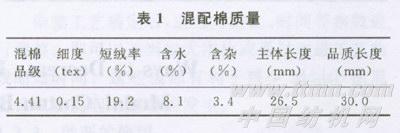 表 1 混配棉质量
混棉 细度 短绒率 含水 含杂 主体长度 品质长度
品级 (tex) (%) (%) (%) (mm) (mm)
1.41 0.15 19.2 8.1 3.4 26.5 30.0
www.ttmn.com
中国纺机网